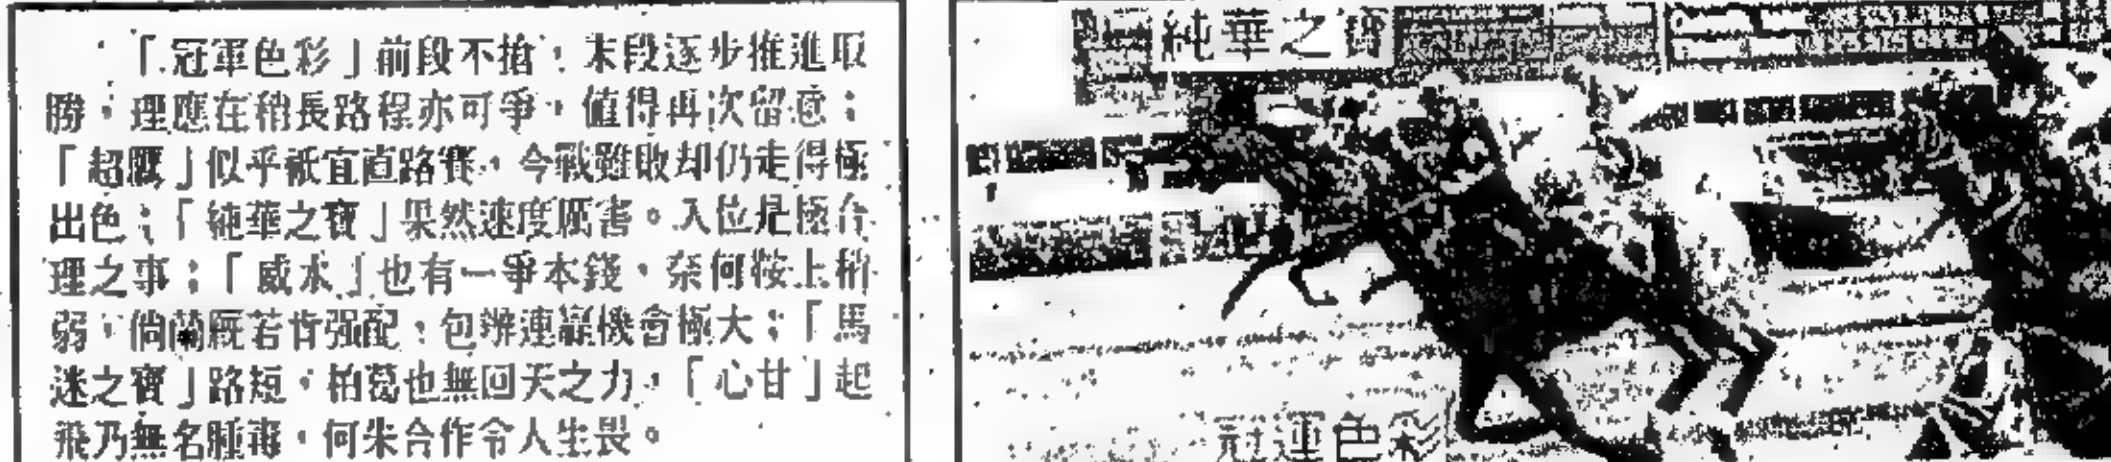 「冠軍色彩」前段不搶，末段逐步推進取
勝，理應在稍長路程亦可爭，值得再次留意；
「超鷹」似乎祇宜直路賽，今戰雖敗却仍走得極
出色；「純華之寶」果然速度厲害。入位是極合
理之事；「威水」也有一爭本錢，奈何鞍上稍
弱，倘蘭厩若肯强配，包辦連贏機會極大；「馬
迷之寶」路短，柏葛也無回天之力，「心甘」起
飛乃無名腫毒，何朱合作令人生畏。
純華之寶
冠軍色彩